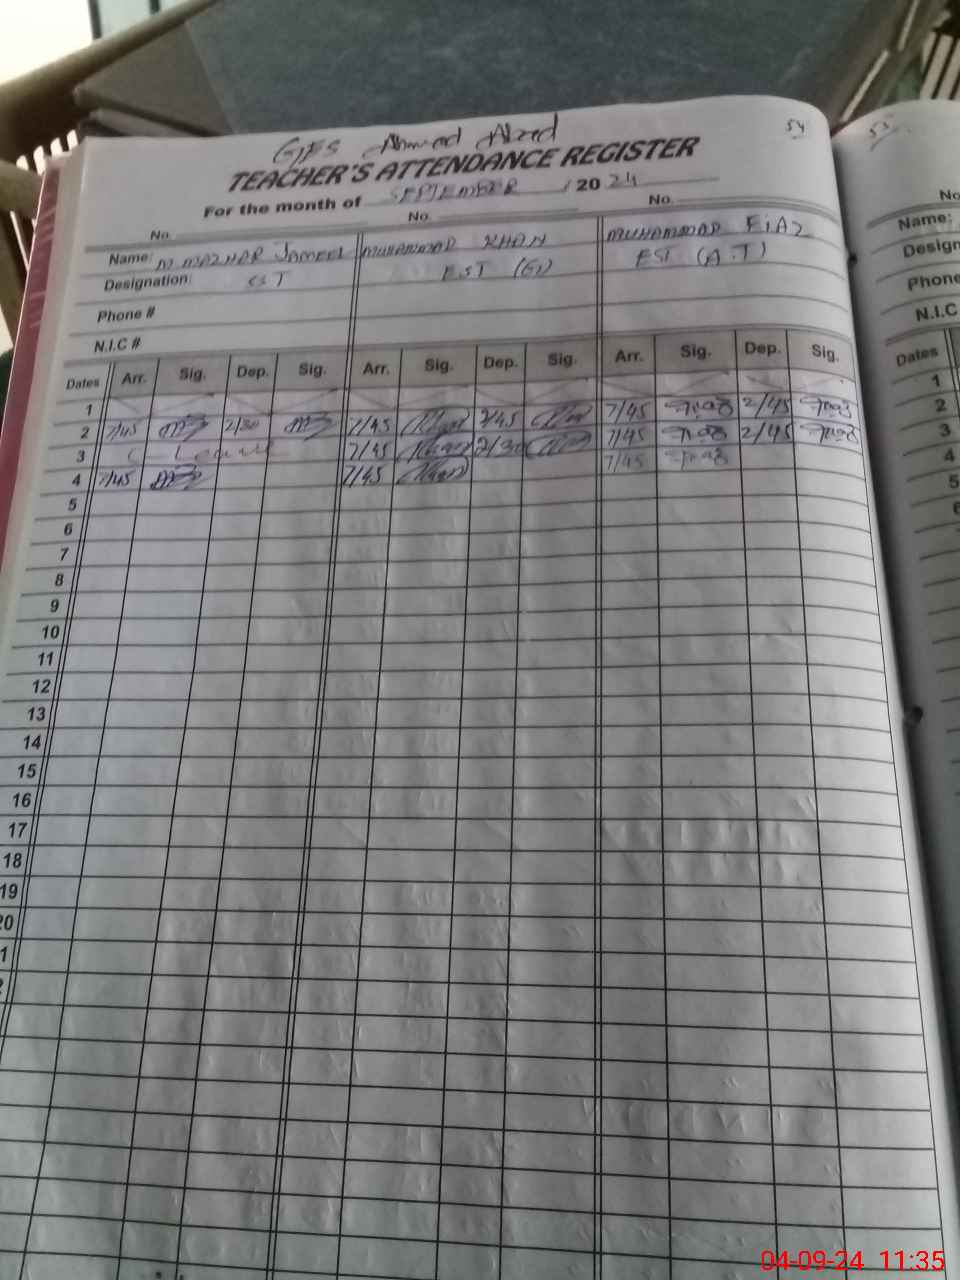 54
53
GES Ahmad Abad
TEACHER'S ATTENDANCE REGISTER
For the month of SEPTEMBER / 2024
No. No. No.
Name: M. MAZHAR JAMEEL MUHAMMAD KHAN MUHAMMAD FiAZ
Designation: SST EST (G) EST (A.T)
Phone #
N.I.C #
Dates Arr. Sig. Dep. Sig. Arr. Sig. Dep. Sig. Arr. Sig. Dep. Sig.
1
2 7/45 2/30 7/45 2/45 7/45 2/45
3 Leave 7/45 2/30 7/45 2/45
4 7/45 7/45 7/45
5
6
7
8
9
10
11
12
13
14
15
16
17
18
19
20
1
No
Name:
Design
Phone
N.I.C
Dates
1
2
3
4
5
04-09-24 11:35